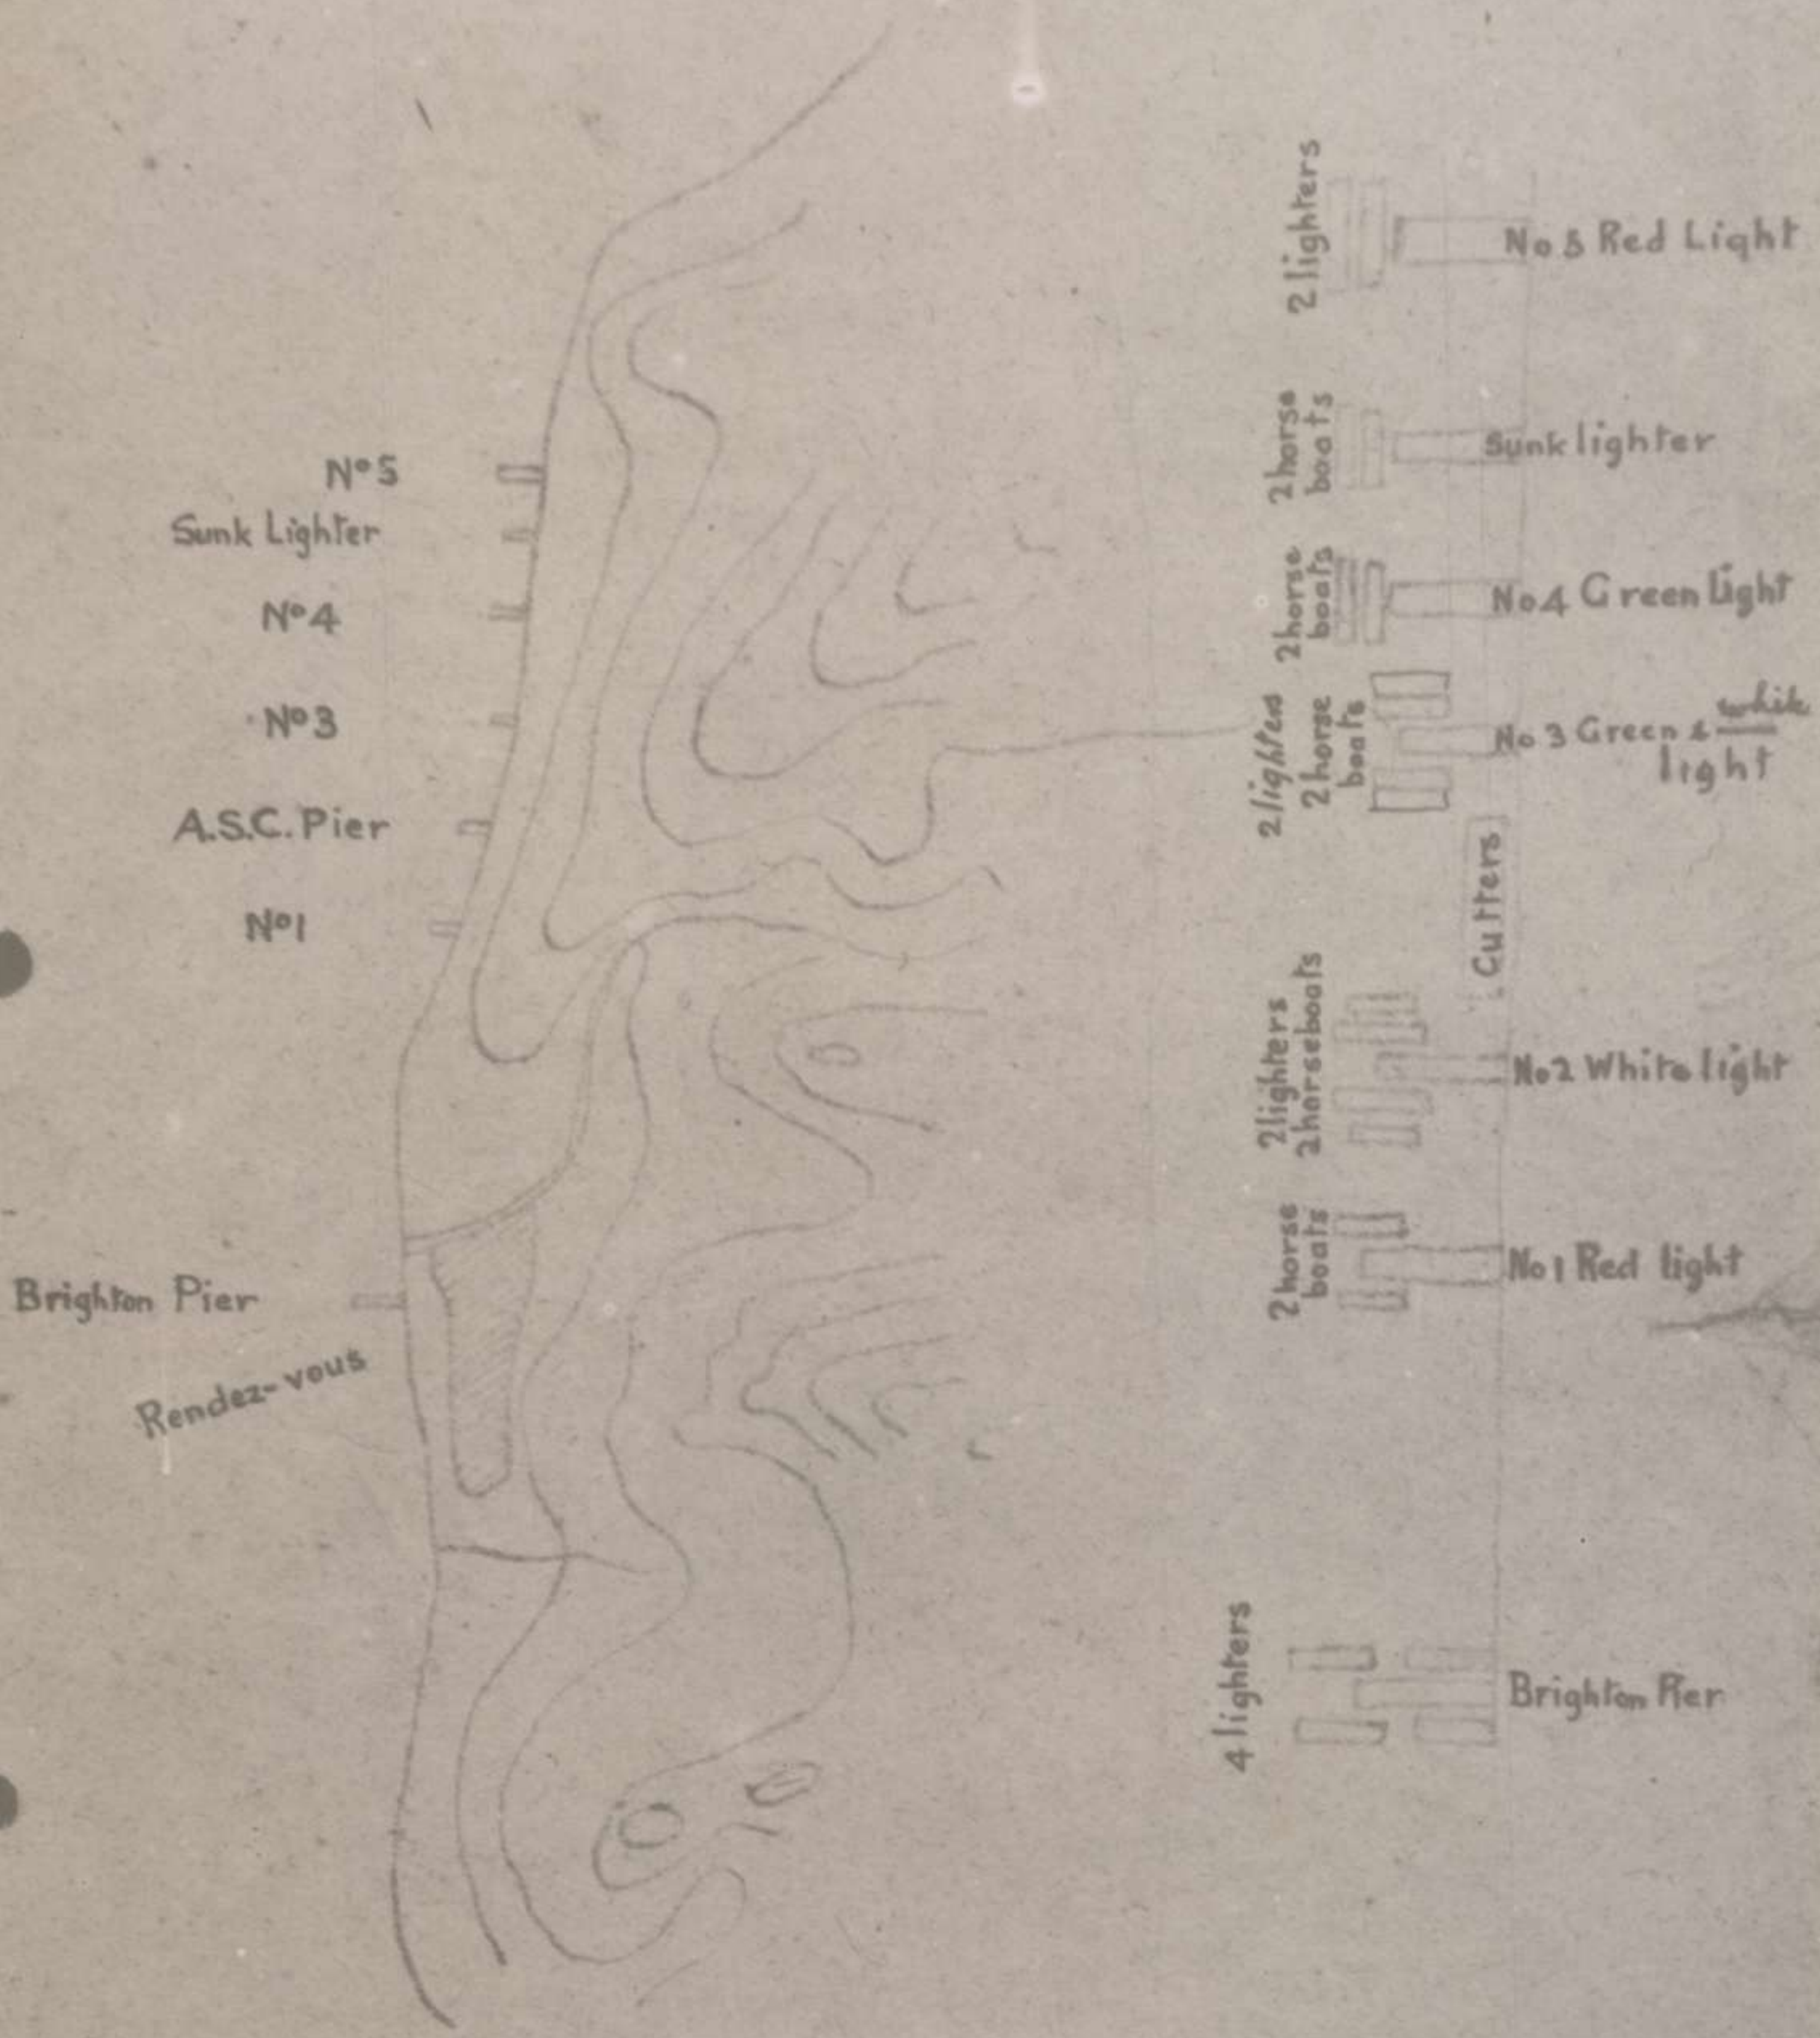 No 5
Sunk Lighter
No 4
No 3
A.S.C. Pier
No 1
Brighton Pier
Rendez-vous
2 lighters
No 5 Red Light
2 horse
boats
Sunk lighter
2 horse
boats
No 4 Green Light
2 lighters
2 horse
boats
No 3 Green & white
light
Cutters
2 lighters
2 horseboats
No 2 White light
2 horse
boats
No 1 Red light
4 lighters
Brighton Pier